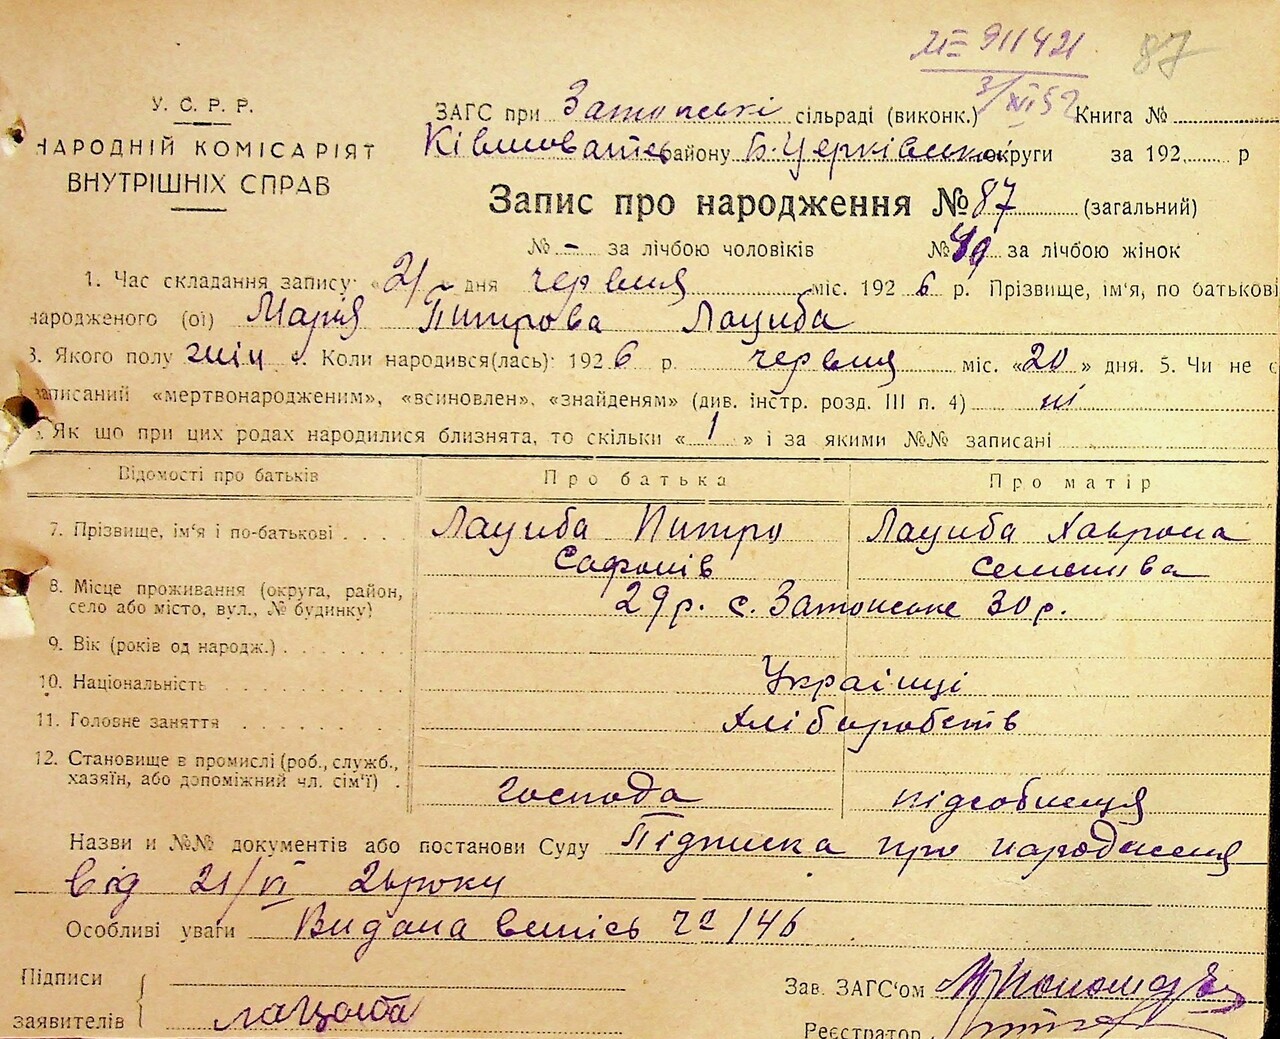 911421 87
3/XI 52
У. С. Р. Р.
НАРОДНІЙ КОМІСАРІЯТ
ВНУТРІШНІХ СПРАВ
ЗАГС при Затонські сільраді (виконк.) Книга №
району Б. Церківської округи за 192 р
Запис про народження № 87 (загальний)
№ – за лічбою чоловіків № 49 за лічбою жінок
1. Час складання запису: «21» дня червня міс. 1926 р. Прізвище, ім'я, по батькові
народженого (ої) Марія Питрова Лациба
3. Якого полу жін 4. Коли народився(лась): 1926 р. червня міс. «20» дня. 5. Чи не є
записаний «мертвонародженим», «всиновлен», «знайденям» (див. інстр. розд. III п. 4) ні
Як що при цих родах народилися близнята, то скільки «1» і за якими №№ записані
Відомості про батьків Про батька Про матір
7. Прізвище, ім'я і по-батькові Лациба Питро Лациба Хаврона
Сафонів Семенова
8. Місце проживання (округа, район,
село або місто, вул., № будинку) 29 р. с. Затонське 30 р.
9. Вік (років од народж.)
10. Національність Українці
11. Головне заняття Хліборобств
12. Становище в промислі (роб., служб.,
хазяїн, або допоміжний чл. сім'ї) господа підсобниця
Назви и №№ документів або постанови Суду Підписка про народження
від 21/VI 26 року
Особливі уваги Видана випись 72/146
Підписи
заявителів Лациба
Зав. ЗАГС'ом
Реєстратор